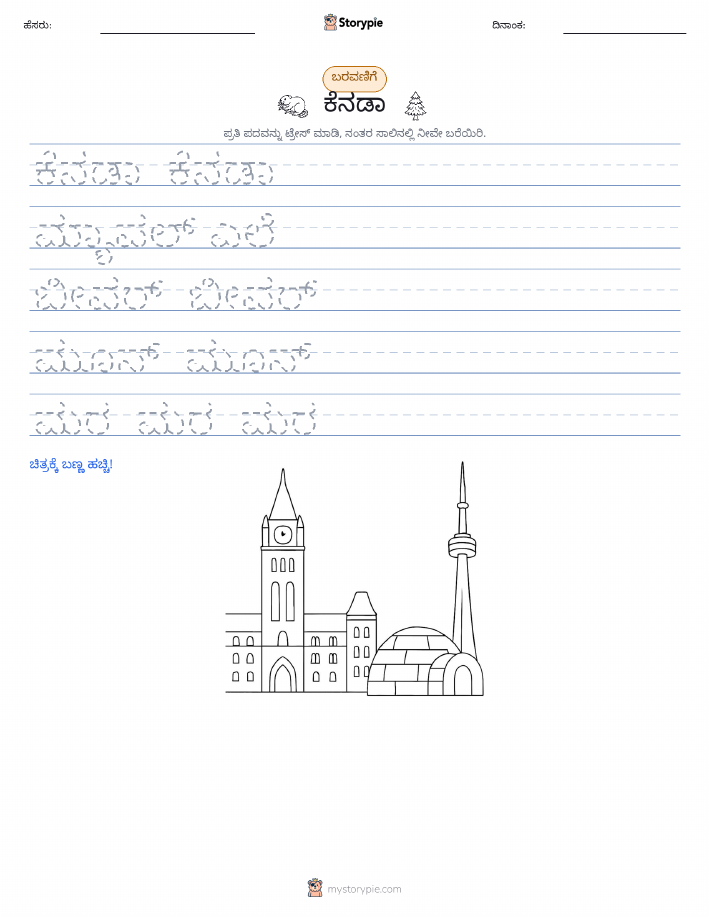 ಹೆಸರು:
Storypie
ದಿನಾಂಕ:
ಬರವಣಿಗೆ
ಕೆನಡಾ
ಪ್ರತಿ ಪದವನ್ನು ಟ್ರೇಸ್ ಮಾಡಿ, ನಂತರ ಸಾಲಿನಲ್ಲಿ ನೀವೇ ಬರೆಯಿರಿ.
ಕೆನಡಾ ಕೆನಡಾ
ಮ್ಯಾಪಲ್ ಎಲೆ
ಬೀವರ್ ಬೀವರ್
ಮೂಸ್ ಮೂಸ್
ಮರ ಮರ ಮರ
ಚಿತ್ರಕ್ಕೆ ಬಣ್ಣ ಹಚ್ಚಿ!
mystorypie.com